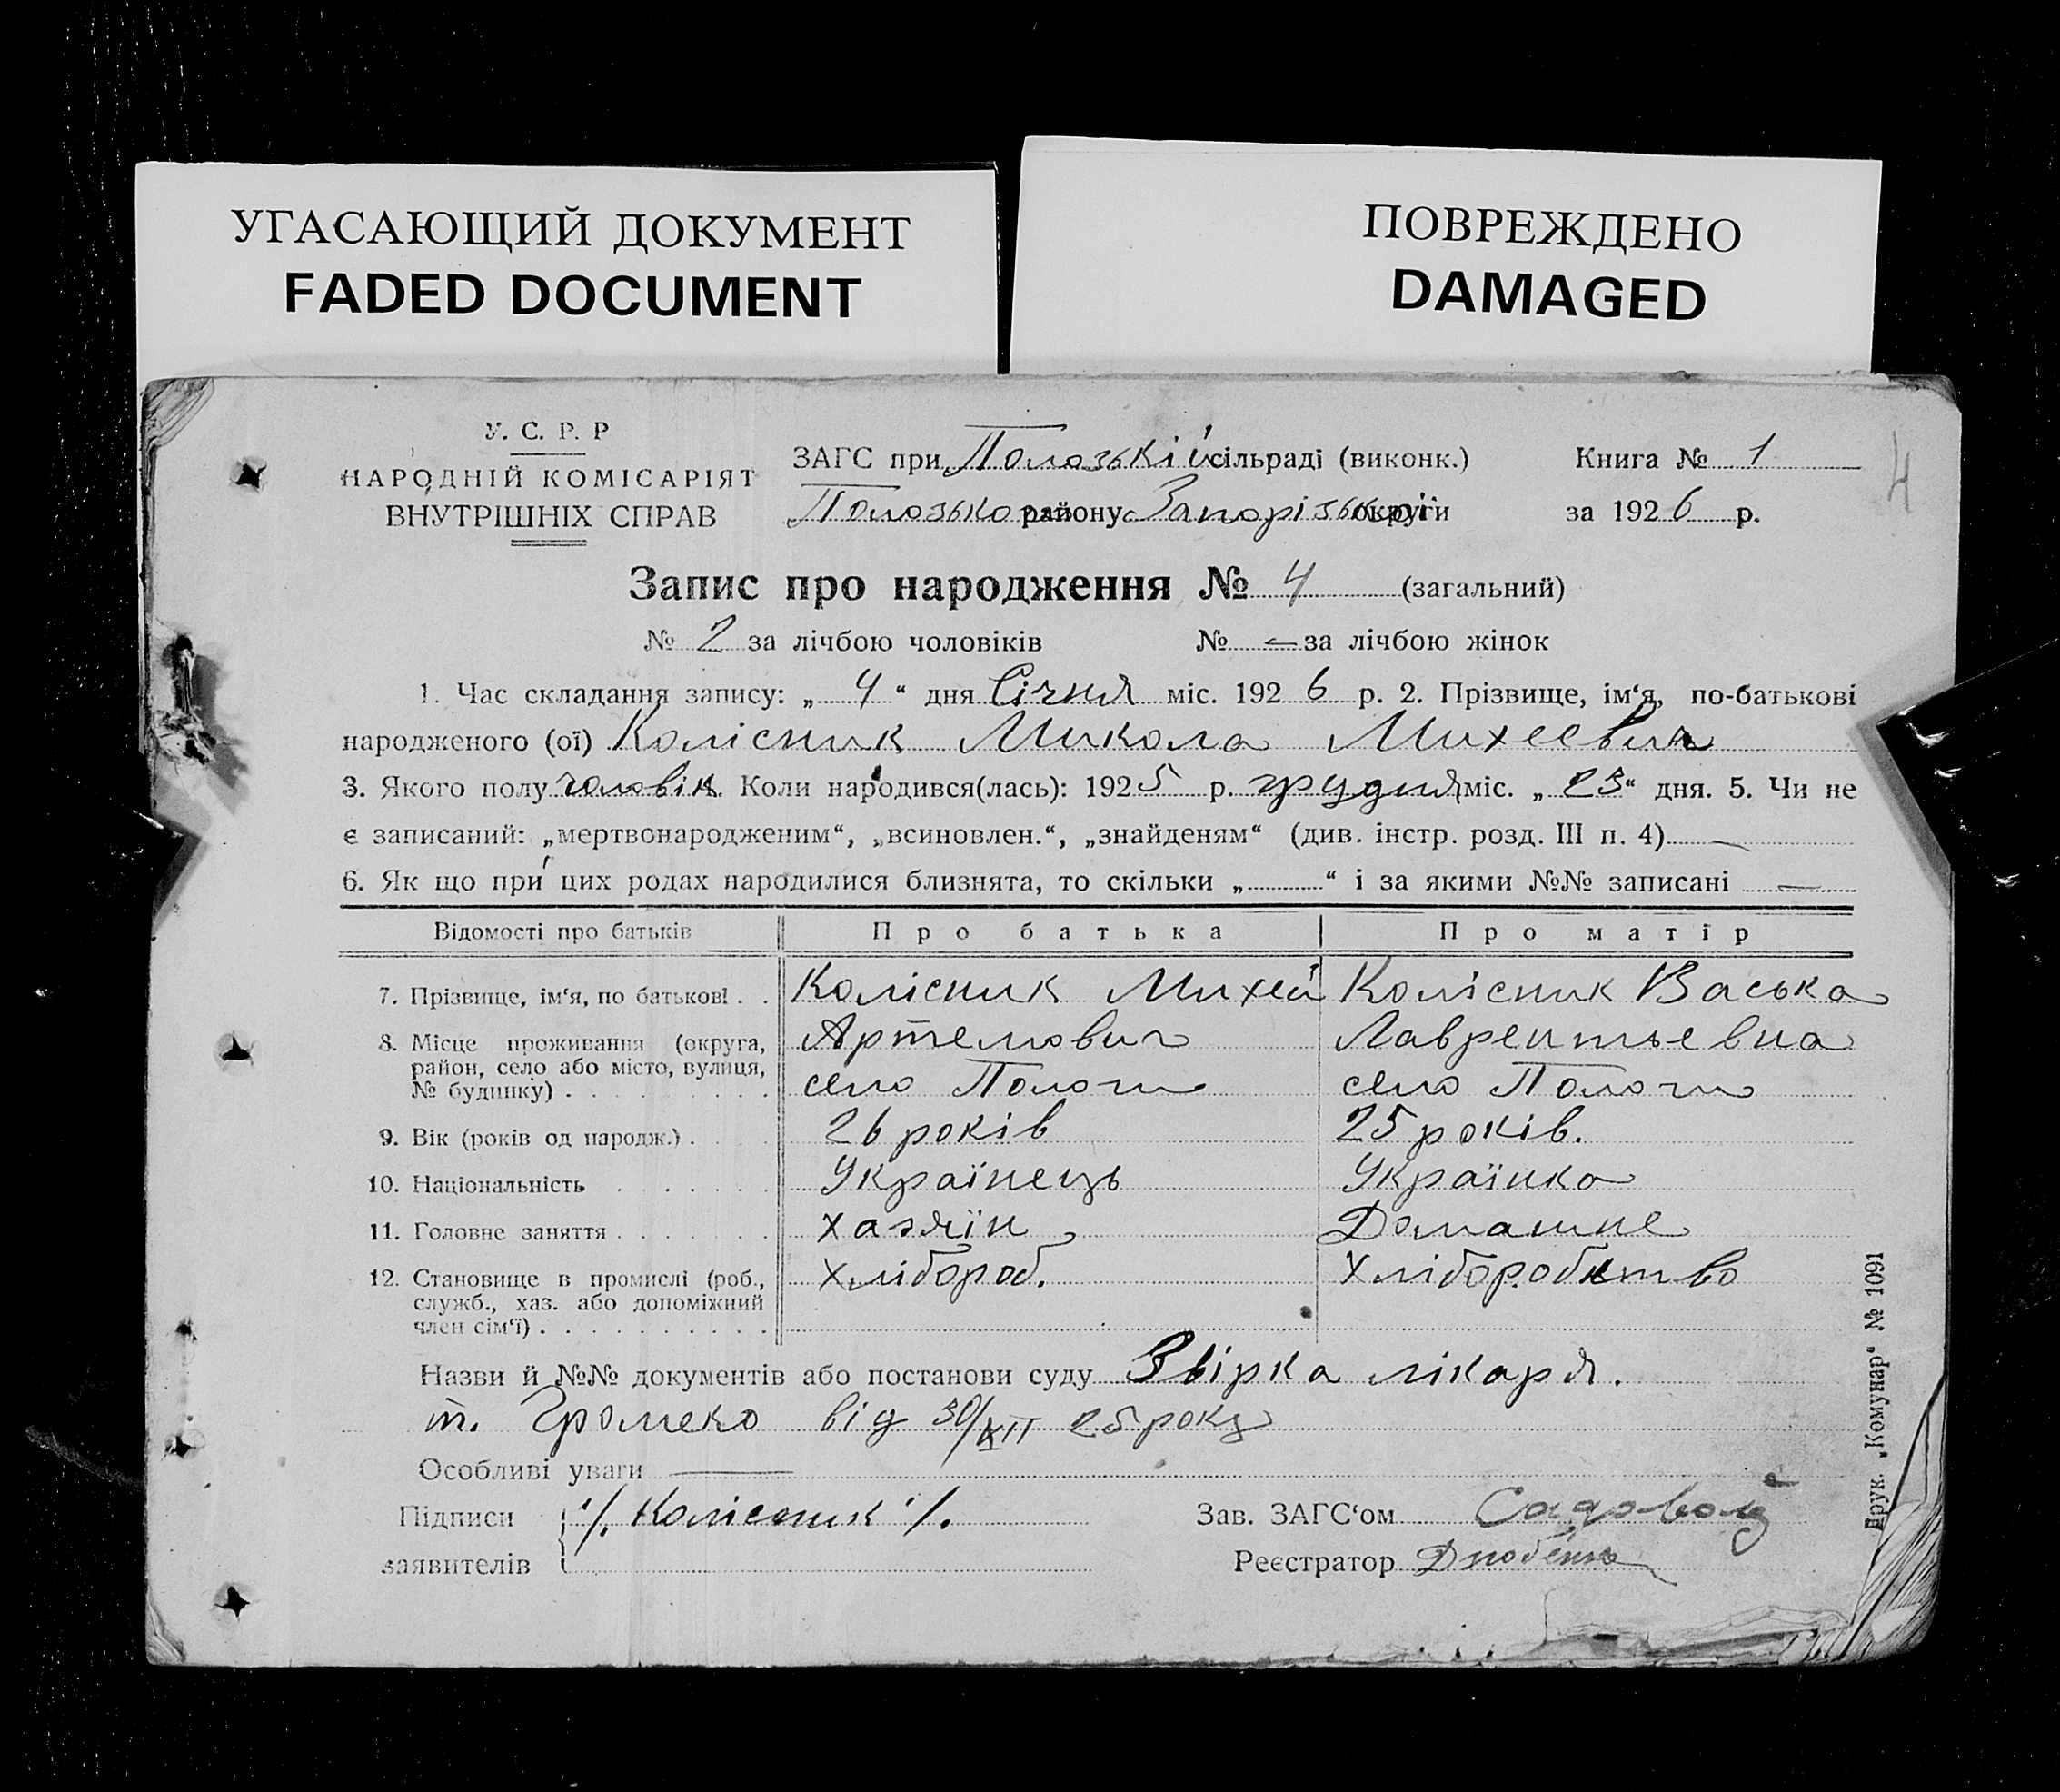 УГАСАЮЩИЙ ДОКУМЕНТ
FADED DOCUMENT
ПОВРЕЖДЕНО
DAMAGED
У. С. Р. Р
НАРОДНІЙ КОМІСАРІЯТ
ВНУТРІШНІХ СПРАВ
ЗАГС при Полозькій сільраді (виконк.)
Полозького району Запорізької округи
Книга № 1
за 1926 р.
4
Запис про народження № 4 (загальний)
№ 2 за лічбою чоловіків № — за лічбою жінок
1. Час складання запису: „ 4 “ дня Січня міс. 1926 р. 2. Прізвище, ім‘я, по-батькові
народженого (ої) Колісник Микола Михеевич
3. Якого полу чоловік. Коли народився(лась): 1925 р. грудня міс. „ 23 “ дня. 5. Чи не
є записаний: „мертвонародженим“, „всиновлен.“, „знайденям“ (див. інстр. розд. III п. 4) —
6. Як що при цих родах народилися близнята, то скільки „ “ і за якими №№ записані —
Відомості про батьків Про батька Про матір
7. Прізвище, ім‘я, по батькові . . Колісник Михей Колісник Васька
8. Місце проживання (округа, Артемович Лаврентьевна
район, село або місто, вулиця,
№ будинку) . село Пологи село Пологи
9. Вік (років од народж.) . 26 років 25 років.
10. Національність Українець Українка
11. Головне заняття . хазяїн Домашне
12. Становище в промислі (роб., хлібороб. хліборобство
служб., хаз. або допоміжний
член сім‘ї) .
Назви й №№ документів або постанови суду Звірка лікаря.
т. Громеко від 30/XII 25 року
Особливі уваги —
Підписи /. Колісник /. Зав. ЗАГС‘ом Садовой
заявителів Реєстратор
Друк. „Комунар“ № 1091